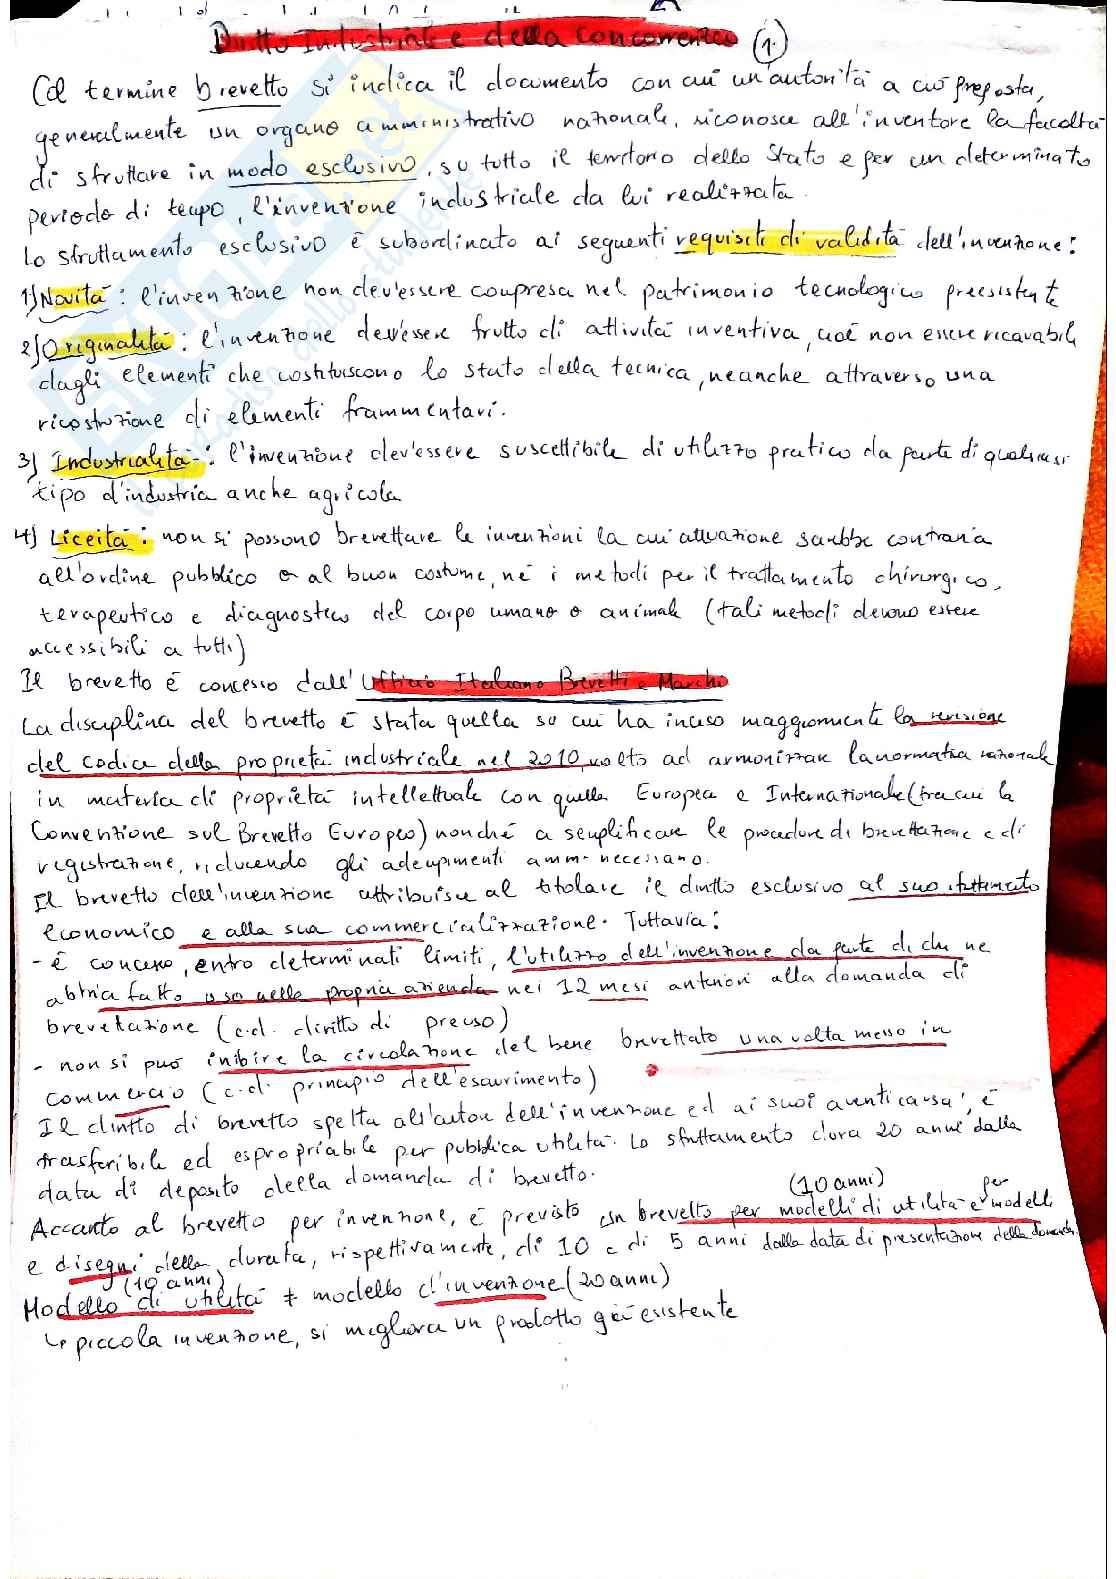 Diritto Industriale e della concorrenza (1)
Col termine brevetto si indica il documento con cui un'autorità a ciò preposta,
generalmente un organo amministrativo nazionale, riconosce all'inventore la facoltà
di sfruttare in modo esclusivo, su tutto il territorio dello Stato e per un determinato
periodo di tempo, l'invenzione industriale da lui realizzata.
Lo sfruttamento esclusivo è subordinato ai seguenti requisiti di validità dell'invenzione:
1) Novità: l'invenzione non dev'essere compresa nel patrimonio tecnologico preesistente
2) Originalità: l'invenzione dev'essere frutto di attività inventiva, cioè non essere ricavabile
dagli elementi che costituiscono lo stato della tecnica, neanche attraverso una
ricostruzione di elementi frammentari.
3) Industrialità: l'invenzione dev'essere suscettibile di utilizzo pratico da parte di qualsiasi
tipo d'industria anche agricola
4) Liceità: non si possono brevettare le invenzioni la cui attuazione sarebbe contraria
all'ordine pubblico o al buon costume, né i metodi per il trattamento chirurgico,
terapeutico e diagnostico del corpo umano o animale (tali metodi devono essere
accessibili a tutti)
Il brevetto è concesso dall'Ufficio Italiano Brevetti e Marchi
La disciplina del brevetto è stata quella su cui ha inciso maggiormente la revisione
del codice della proprietà industriale nel 2010, volto ad armonizzare la normativa nazionale
in materia di proprietà intellettuale con quella Europea e Internazionale (tra cui la
Convenzione sul Brevetto Europeo) nonché a semplificare le procedure di brevettazione e di
registrazione, riducendo gli adempimenti amm. necessario.
Il brevetto dell'invenzione attribuisce al titolare il diritto esclusivo al suo sfruttamento
economico e alla sua commercializzazione. Tuttavia:
- è concesso, entro determinati limiti, l'utilizzo dell'invenzione da parte di chi ne
abbia fatto uso nella propria azienda nei 12 mesi anteriori alla domanda di
brevettazione (c.d. diritto di preuso)
- non si può inibire la circolazione del bene brevettato una volta messo in
commercio (c.d. principio dell'esaurimento)
Il diritto di brevetto spetta all'autore dell'invenzione ed ai suoi aventi causa, è
trasferibile ed espropriabile per pubblica utilità. Lo sfruttamento dura 20 anni dalla
data di deposito della domanda di brevetto.
(10 anni) per
Accanto al brevetto per invenzione, è previsto un brevetto per modelli di utilità e modelli
e disegni della durata, rispettivamente, di 10 e di 5 anni dalla data di presentazione della domanda.
(10 anni)
Modello di utilità ≠ modello d'invenzione (20 anni)
↳ piccola invenzione, si migliora un prodotto già esistente